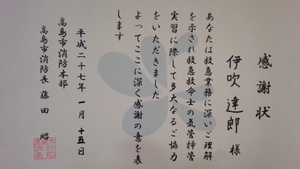 感謝状
伊吹達郎様
あなたは救急業務に深いご理解
を示され救急救命士の気管挿管
実習に際して多大なるご協力
をいただきました
よってここに深く感謝の意を表
します
平成二十七年一月十五日
高島市消防本部
高島市消防長 藤田 昭